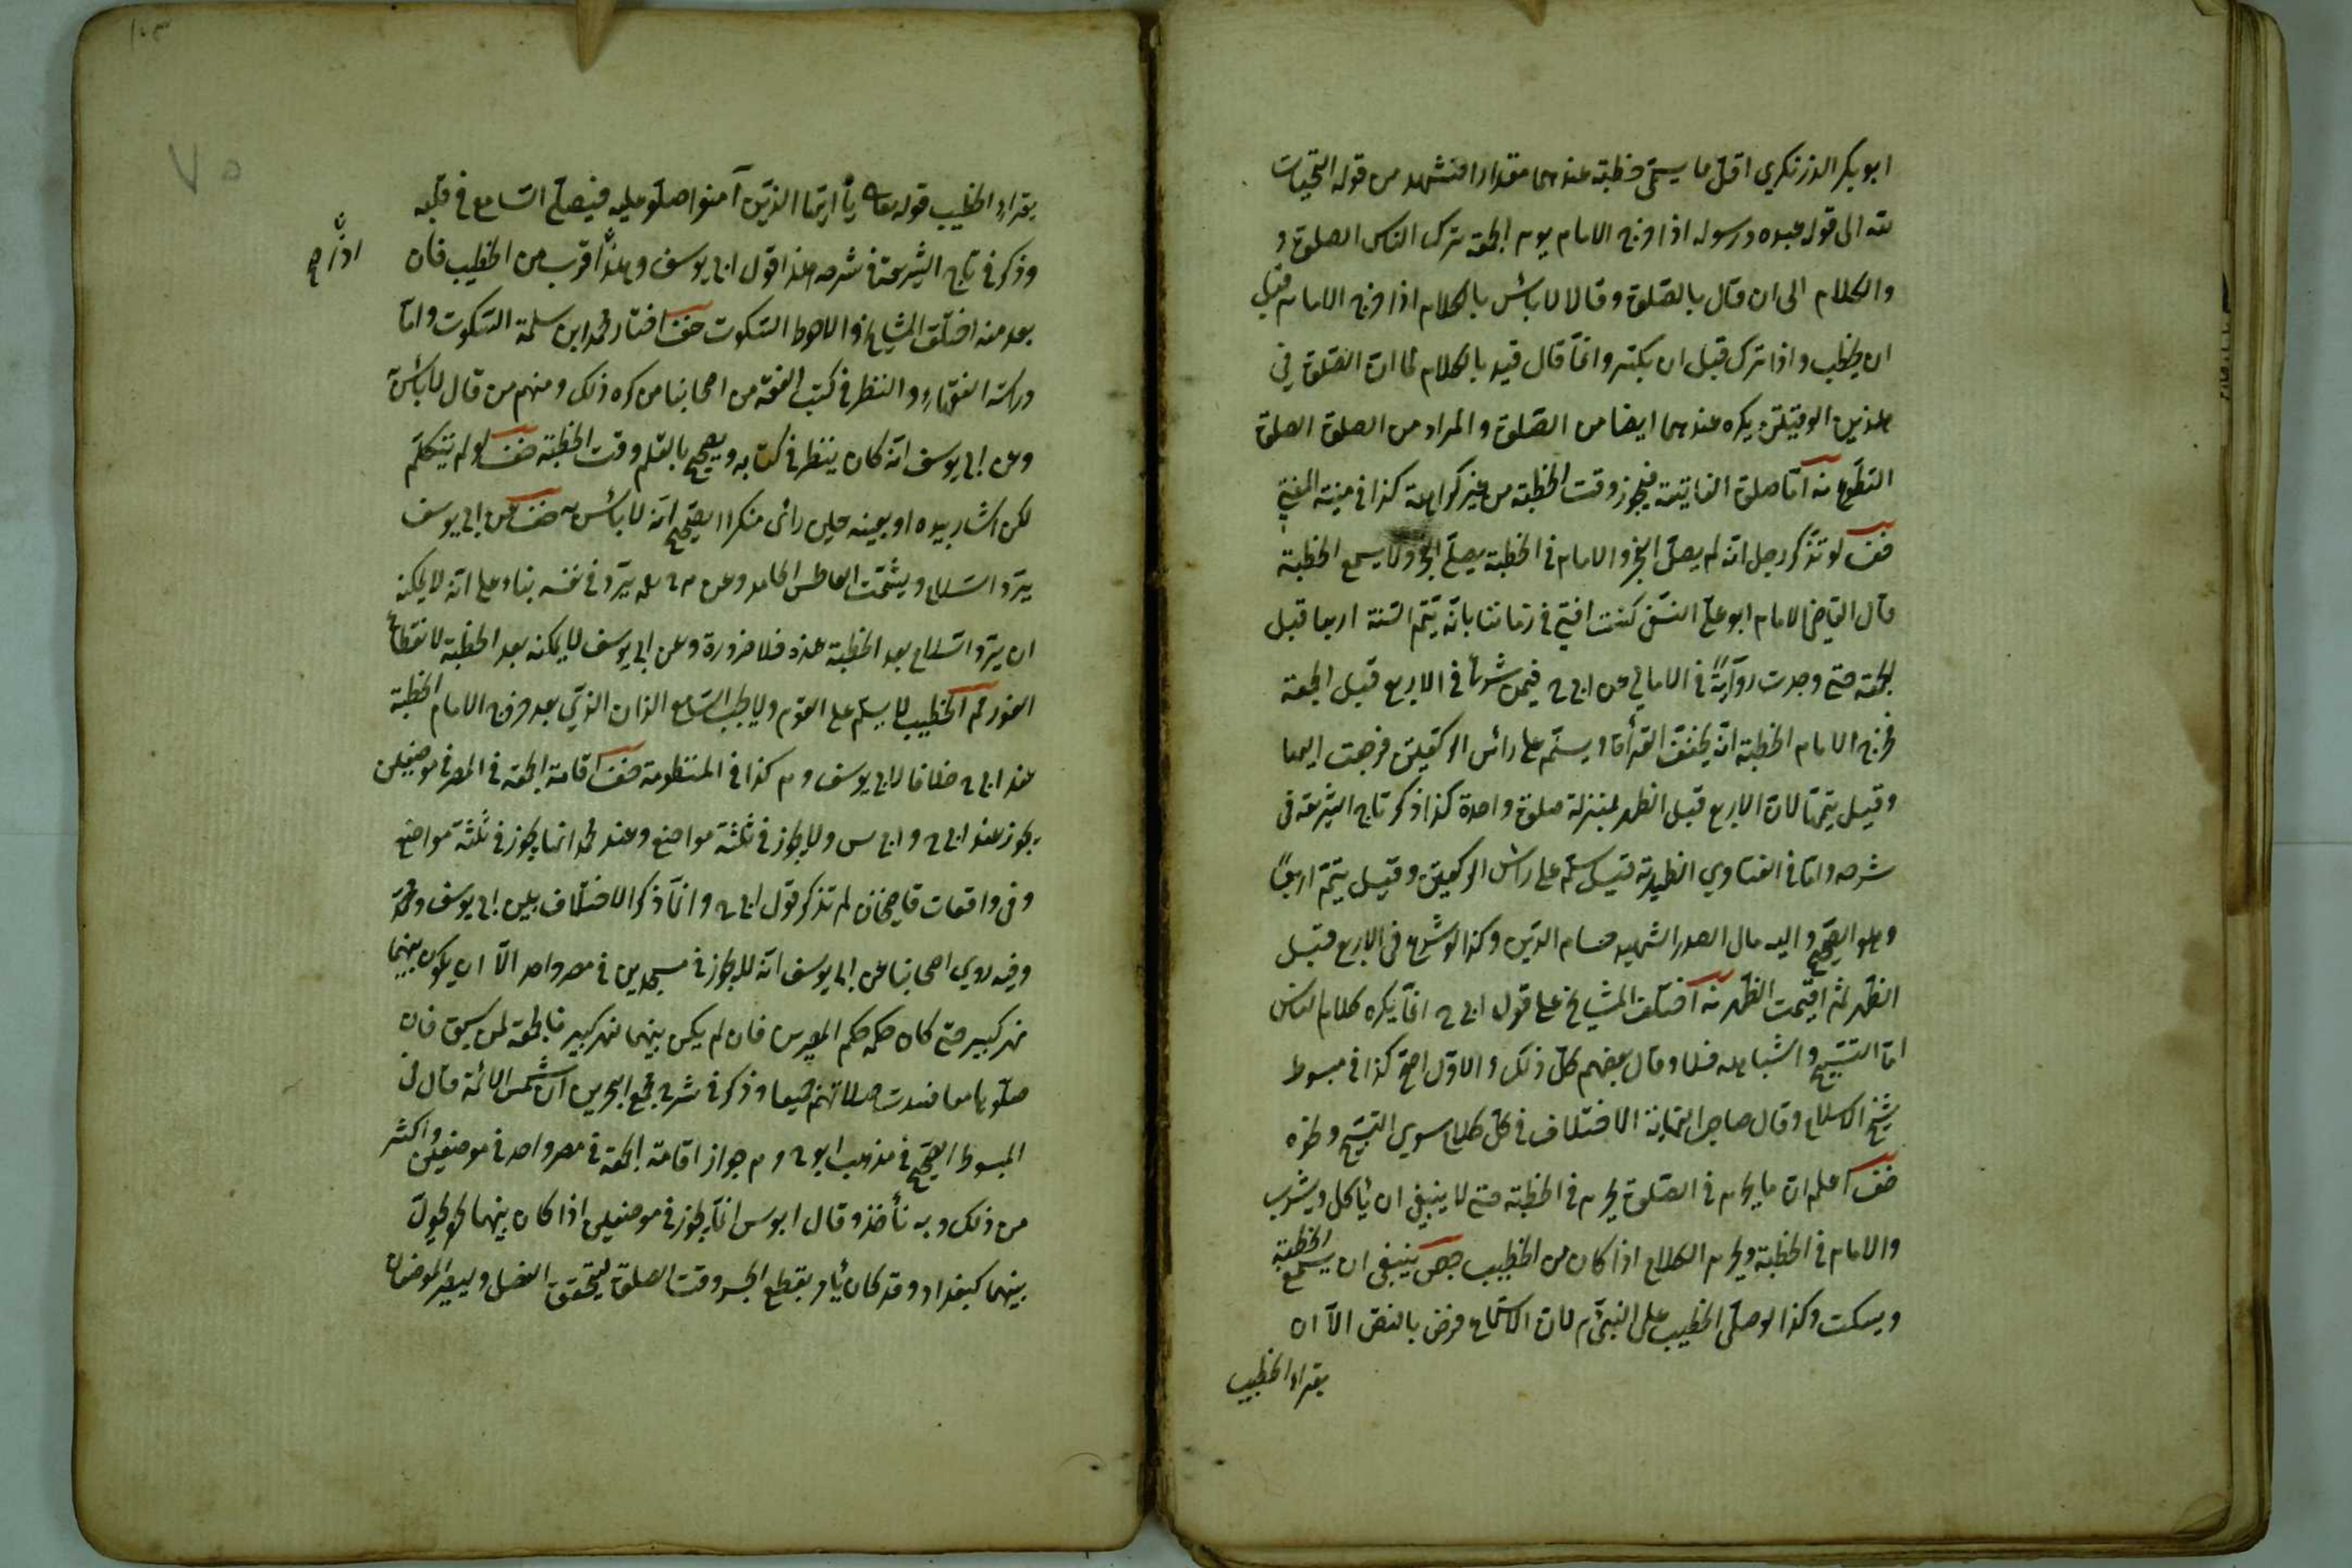 ابو بكر الزرنكري اقل ما يسمى خطبة عندهما مقدار التشهد من قوله التحيات
لله الى قوله عبده ورسوله اذا خرج الامام يوم الجمعة ترك الناس الصلوة و
والكلام الى ان قال بالصلوة وقالا لا بائس بالكلام اذا خرج الامام قبل
ان يخطب واذا ترك قبل ان يكبر وانما قال قيد بالكلام لما ان الصلوة في
هذين الوقتين يكره عندهما ايضا من الصلوة والمراد من الصلوة الصلوة
التطوع منه اما صلوة الفايتة فيجوز وقت الخطبة من غير كراهة كذا في منية المفتي
ضف لو تذكر رجل انه لم يصل الفجر والامام في الخطبة يصلي الفجر ولا يسمع الخطبة
قال القاضي الامام ابو علي النسفي كنت افتي في زماننا بانه يتم السنة اربعا قبل
الجمعة حتى وجدت رواية في الامالي عن ابي ح فيمن شرع في الاربع قبل الجمعة
فخرج الامام الخطبة انه يخفف القرأة ويسلم على رائس الركعتين فرجعت اليها
وقيل يتمها لان الاربع قبل الظهر بمنزلة صلوة واحدة كذا ذكر تاج الشريعة في
شرحه واما في الفتاوي الظهيرية قيل سلم على رائس الركعتين وقيل يتم اربعا
وهو الصحيح واليه مال الصدر الشهيد حسام الدين وكذا لو شرع في الاربع قبل
الظهر ثم اقيمت الظهر منه اختلف المشايخ على قول ابي ح انما يكره كلام الناس
اما التسبيح واشباهه فلا وقال بعضهم كل ذلك والاول اصح كذا في مبسوط
شيخ الاسلام وقال صاحب النهاية الاختلاف في كل كلام سوي التسبيح ونحوه
ضف اعلم ان ما يحرم في الصلوة يحرم في الخطبة حتى لا ينبغي ان يأكل ويشرب
والامام في الخطبة ويحرم الكلام اذا كان من الخطيب جص ينبغي ان يسمع الخطبة
ويسكت وكذا لو صلى الخطيب على النبي م لان الاستماع فرض بالنص الا ان
يقراء الخطيب
يقراء الخطيب قوله تعالى يأ ايها الذين آمنوا صلو عليه فيصلي السامع في قلبه
وذكر في تاج الشريعة في شرحه هذا قول ابي يوسف وهذا اقرب من الخطيب فان
بعد منه اختلف المشايخ والاحوط السكوت ضف اختار محمد ابن سلمة السكوت واما
دراسة الفقه والنظر في كتب الفقه من اصحابنا من كره ذلك ومنهم من قال لا بائس
وعن ابي يوسف انه كان ينظر في كتابه ويصحح بالقلم وقت الخطبة ضف لو لم يتكلم
لكن اشار بيده او بعينه حين رائى منكرا الصحيح انه لا بائس به ضف عن ابي يوسف
يرد السلام ويشمت العاطس الحامد وعن م رحمه يرد في نفسه بناء على انه لا يمكنه
ان يرد السلام بعد الخطبة عنده فلا ضرورة وعن ابي يوسف لا يمكنه بعد الخطبة لانقطاع
الفور ثم الخطيب لا يسلم على القوم ولا يجب السامع الاذان الذي بعد خروج الامام الخطبة
عند ابي ح خلافا لابي يوسف وم كذا في المنظومة ضف اقامة الجمعة في المصر في موضعين
يجوز عند ابي ح وابي س ولا يجوز في ثلثة مواضع وعند محمد انها يجوز في ثلثة مواضع
وفي واقعات قاضيخان لم تذكر قول ابي ح وانما ذكر الاختلاف بين ابي يوسف ومحمد
وفيه روي اصحابنا عن ابي يوسف انه لا يجوز في مسجدين في مصر واحد الا ان يكون بينهما
نهر كبير حتى كان حكمه حكم المصرين فان لم يكن بينهما نهر كبير فالجمعة لمن سبق فان
صلوها معا فسدت صلاتهم جميعا وذكر في شرح مجمع البحرين ان شمس الائمة قال في
المبسوط الصحيح في مذهب ابو ح وم جواز اقامة الجمعة في مصر واحد في موضعين واكثر
من ذلك وبه نأخذ وقال ابو س انما يجوز في موضعين اذا كان بينهما
بينهما كبغداد وقد كان يأمر بقطع الجسر وقت الصلوة ليتحقق الفصل وليصير الموضعان